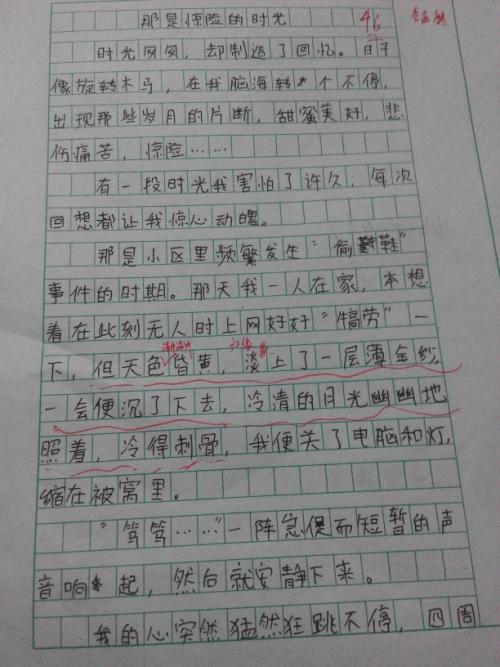 那是惊险的时光
46
时光匆匆，却制造了回忆。日子
像旋转木马，在我脑海转个不停，
出现那些岁月的片断，甜蜜美好，悲
伤痛苦，惊险……
有一段时光我害怕了许久，每次
回想都让我惊心动魄。
那是小区里频繁发生“偷鞋”
事件的时期。那天我一人在家，本想
着在此刻无人时上网好好“犒劳”一
下，但天色渐渐昏黄，淡上了一层薄金纱，
一会便沉了下去，冷清的月光幽幽地
照着，冷得刺骨，我便关了电脑和灯，
缩在被窝里。
“笃笃……”一阵急促而短暂的声
音响起，然后就安静下来。
我的心突然猛然狂跳不停，四周